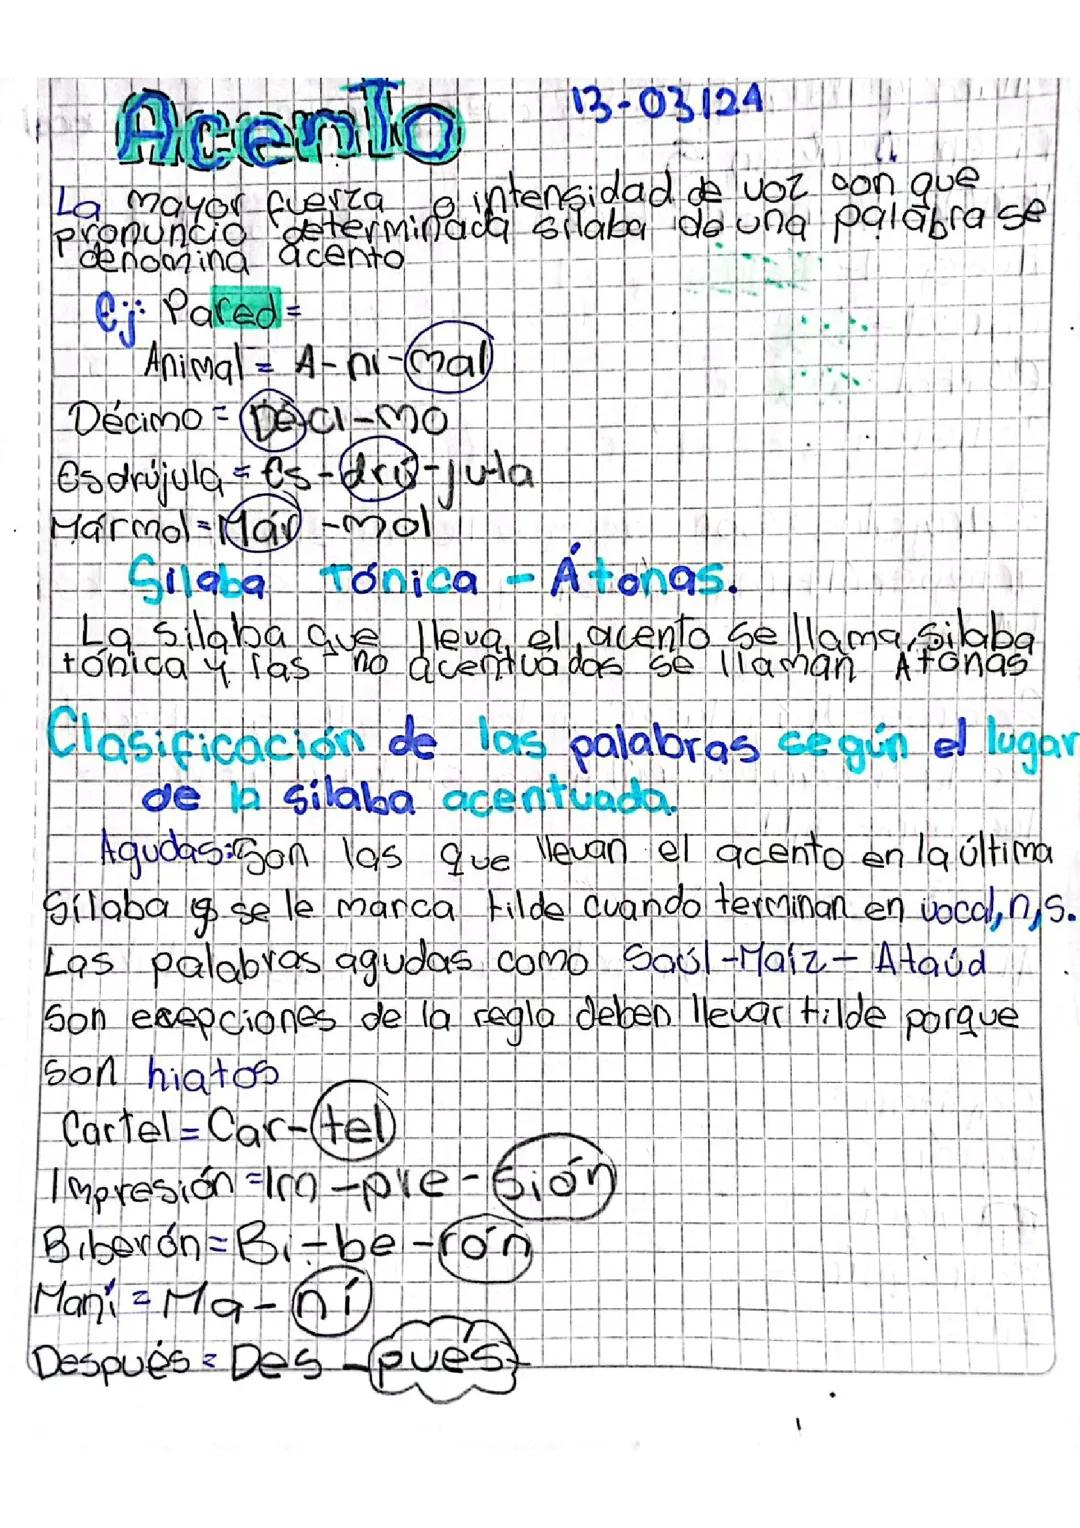 Acento 13-03/24
La mayor fuerza e intensidad de voz con que
pronuncio determinada sílaba de una palabra se
denomina acento
ej: Pared=
Animal = A-ni-mal
Décimo = Déci-mo
Esdrújula = Es-drú-jula
Mármol = Már-mol
Silaba Tónica - Átonas.
La silaba que lleva el acento se llama silaba
tónica y las no acentuadas se llaman Atonas
Clasificación de las palabras según el lugar
de la sílaba acentuada.
Agudas: Son las que llevan el acento en la última
Sílaba y se le marca tilde cuando terminan en vocal, n, s.
Las palabras agudas como Saúl-Maíz-Ataúd
Son exepciones de la regla deben llevar tilde porque
son hiatos
Cartel = Car-tel
Impresión = Im-pre-sión
Biberón = Bi-be-rón
Maní = Ma-ní
Después = Des-pués